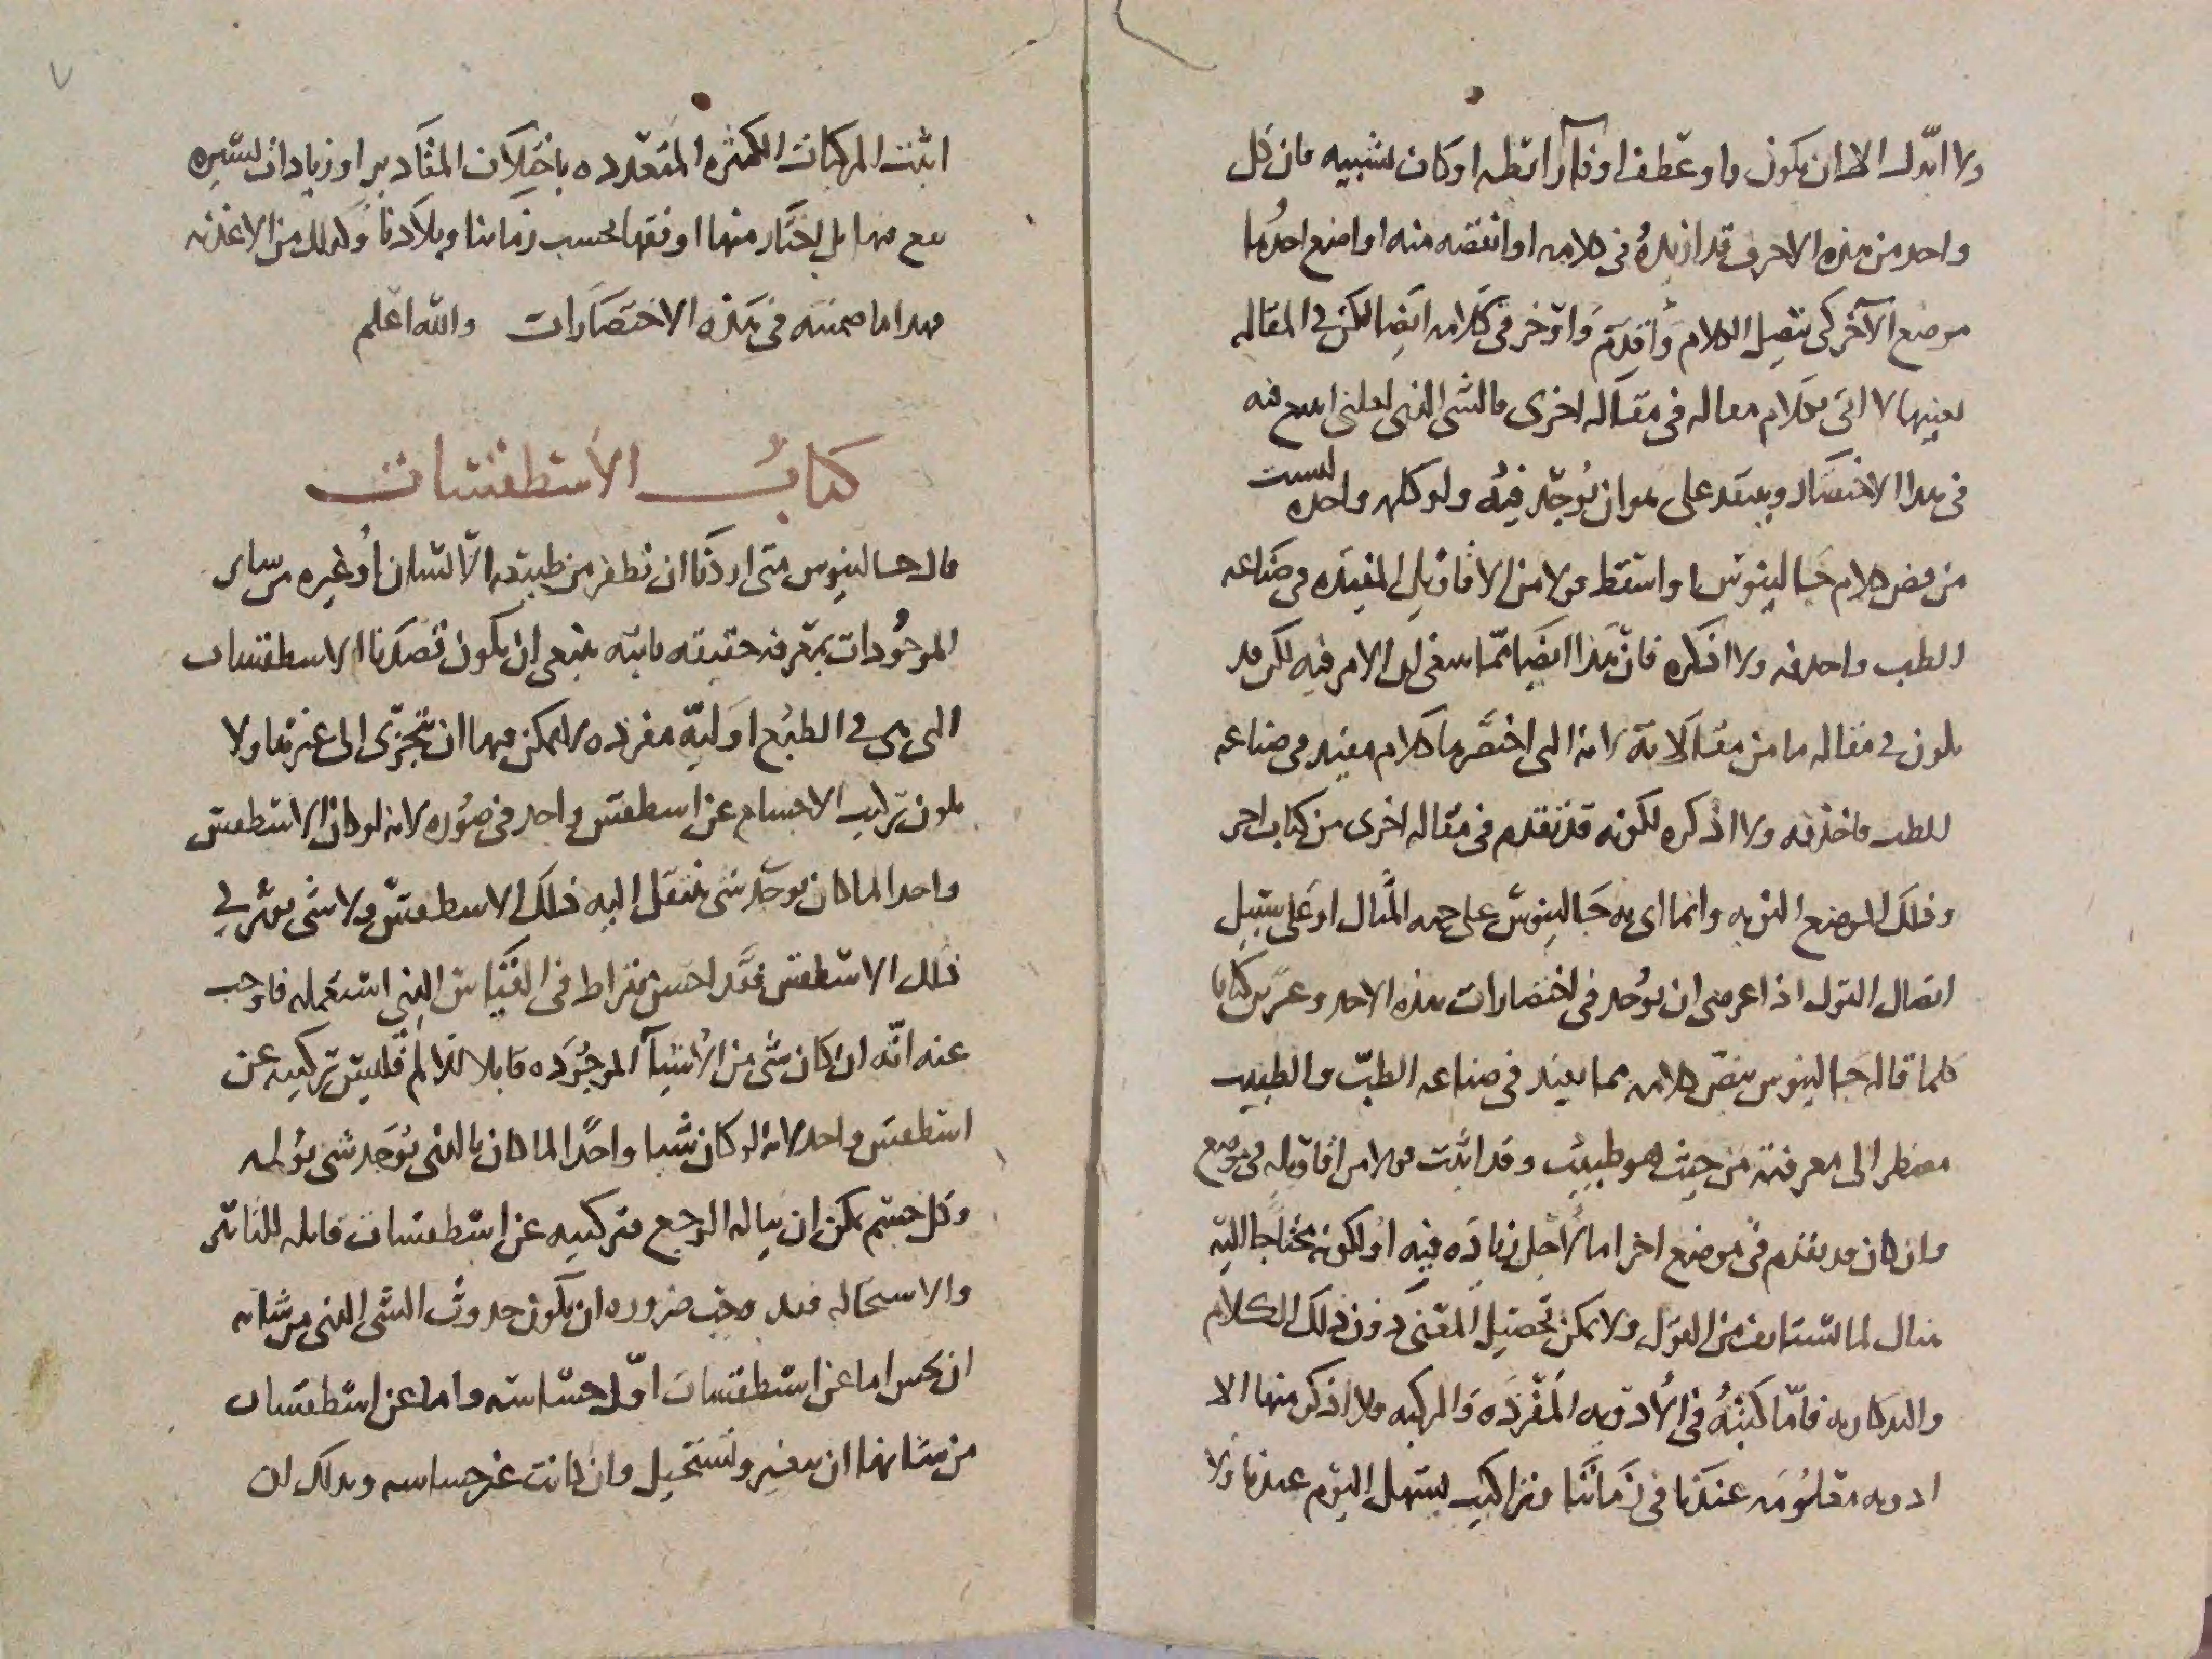 ولا ابدل الا ان يكون واو عطف او فاء رابطه او كاف تشبيه فان كل
واحد من هذه الاحرف قد ازيده في كلامه او انقصه منه او اضع احدها
موضع الآخر كي يتصل الكلام وأقدم وأؤخر في كلامه ايضا لكن في المقاله
بعينها لا آتي بكلام مقاله في مقاله اخرى فالشي الذي لعلني اسمح فيه
في هذا الاختصار ويعتمد على هو ان يوجد فيه ولو كلمه واحده ليست
من نص كلام جالينوس او اسقط قولا من الاقاويل المفيده في صناعه
الطب واحذفه ولا اذكره فان هذا ايضا مما الامر فيه لكن قد
يكون في مقاله ما من مقالاته هذه التي اختصرها كلام مفيد في صناعه
الطب فاحذفه ولا اذكره لكونه قد تقدم في مقاله اخرى من كتاب اخر
وذلك الموضع اليق به وانما اتى به جالينوس على جهه المثال او على سبيل
اتصال القول اذا غرضي ان يوجد في اختصارات هذه الاحد وعشرين كتابا
كلما قاله جالينوس بنص كلامه مما يفيد في صناعه الطب والطبيب
مضطر الى معرفته من حيث هو طبيب وقد اثبت قولا من اقاويله في موضع
وان كان قد تقدم في موضع اخر اما لاجل زياده فيه او لكونه محتاجا اليه
لما يستانف من القول ولا يمكن تحصيل المعنى دون ذلك الكلام
فاما كتبه في الأدويه المفرده والمركبه فلا اذكر منها الا
ادويه معلومه عندنا في زماننا وتراكيب يسهل اليوم عندنا ولا
اثبت المركبات الكثيره المتعدده باختلاف المقادير او زيادات يسيره
منها بل اختار منها اوفقها بحسب زماننا وبلادنا وكذلك من الاغذيه
فهذا ما ضمنته في هذه الاختصارات والله اعلم
كتاب الأسطقسات
قال جالينوس متى اردنا ان نظفر من طبيعه الانسان أو غيره من ساير
الموجودات بمعرفه حقيقيه ثابته ينبغي ان يكون قصدنا الاسطقسات
التي هي في الطبع اوليه مفرده لا يمكن فيها ان تتجزى الى غيرها ولا
يكون تركيب الاجسام عن اسطقس واحد في صوره لانه لو كان الاسطقس
واحدا لما كان يوجد شي ينتقل اليه ذلك الاسطقس ولا شي يؤثر في
ذلك الاسطقس فقد احسن بقراط في القياس الذي استعمله فاوجب
عنه انه ان كان شي من الأشيآ الموجوده قابلا للالم فليس تركيبه عن
اسطقس واحد لانه لو كان شيا واحدا لما كان بالذي يوجد شي يؤلمه
وكل جسم يمكن ان يناله الوجع فتركيبه عن اسطقسات قابله للتاثير
والاستحاله فقد وجب ضروره ان يكون حدوث الشي الذي من شانه
ان يحس اما عن اسطقسات اول حساسه واما عن اسطقسات
من شانها ان تتغير وتستحيل وان كانت غير حساسه وذلك ان